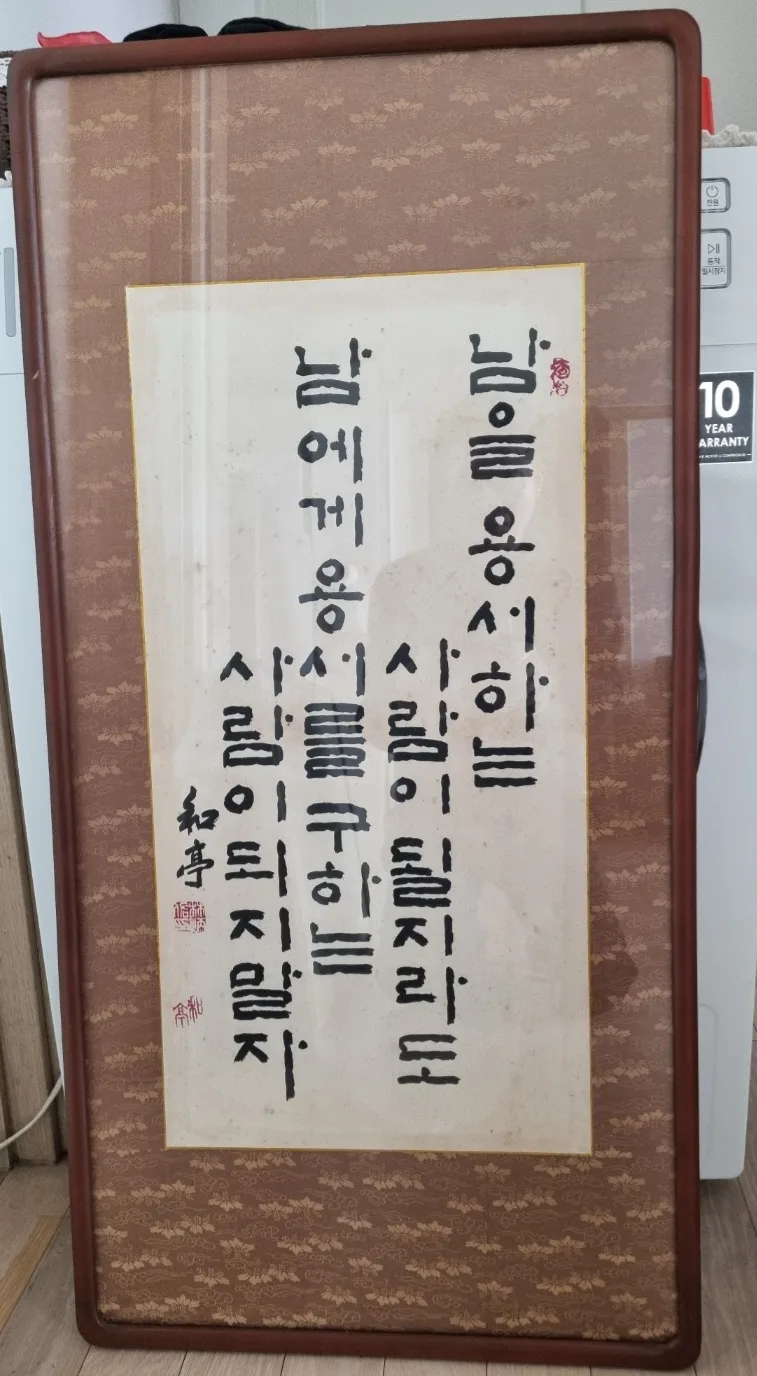 남을 용서하는
사람이 될지라도
남에게 용서를 구하는
사람이 되지 말자
和亭
和亭
전원
동작
일시정지
10
YEAR
WARRANTY